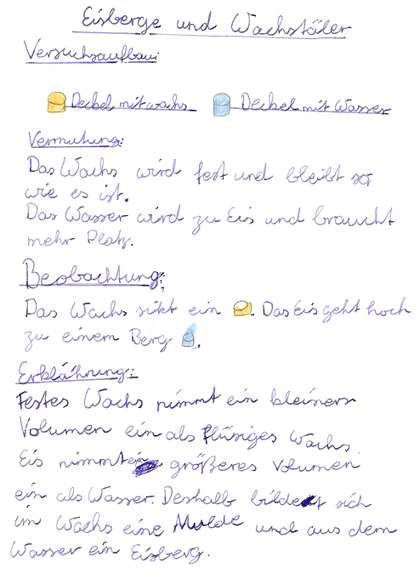 Eisberge und Wachstäler
Versuchsaufbau:
Deckel mit wachs Deckel mit Wasser
Vermutung:
Das Wachs wird fest und bleibt so
wie es ist.
Das Wasser wird zu Eis und braucht
mehr Platz.
Beobachtung:
Das Wachs sikt ein. Das Eis geht hoch
zu einem Berg.
Erklährung:
Festes Wachs nimmt ein kleiners
Volumen ein als flüsiges Wachs.
Eis nimmt ein größeres Volumen
ein als Wasser. Deshalb bildet sich
im Wachs eine Mulde und aus dem
Wasser ein Eisberg.